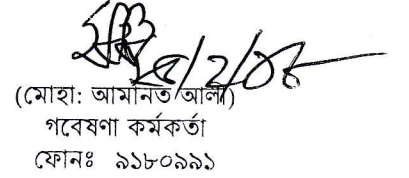 (মোহা: আমানত আলী)
গবেষণা কর্মকর্তা
ফোনঃ ৯১৮০৯৯১